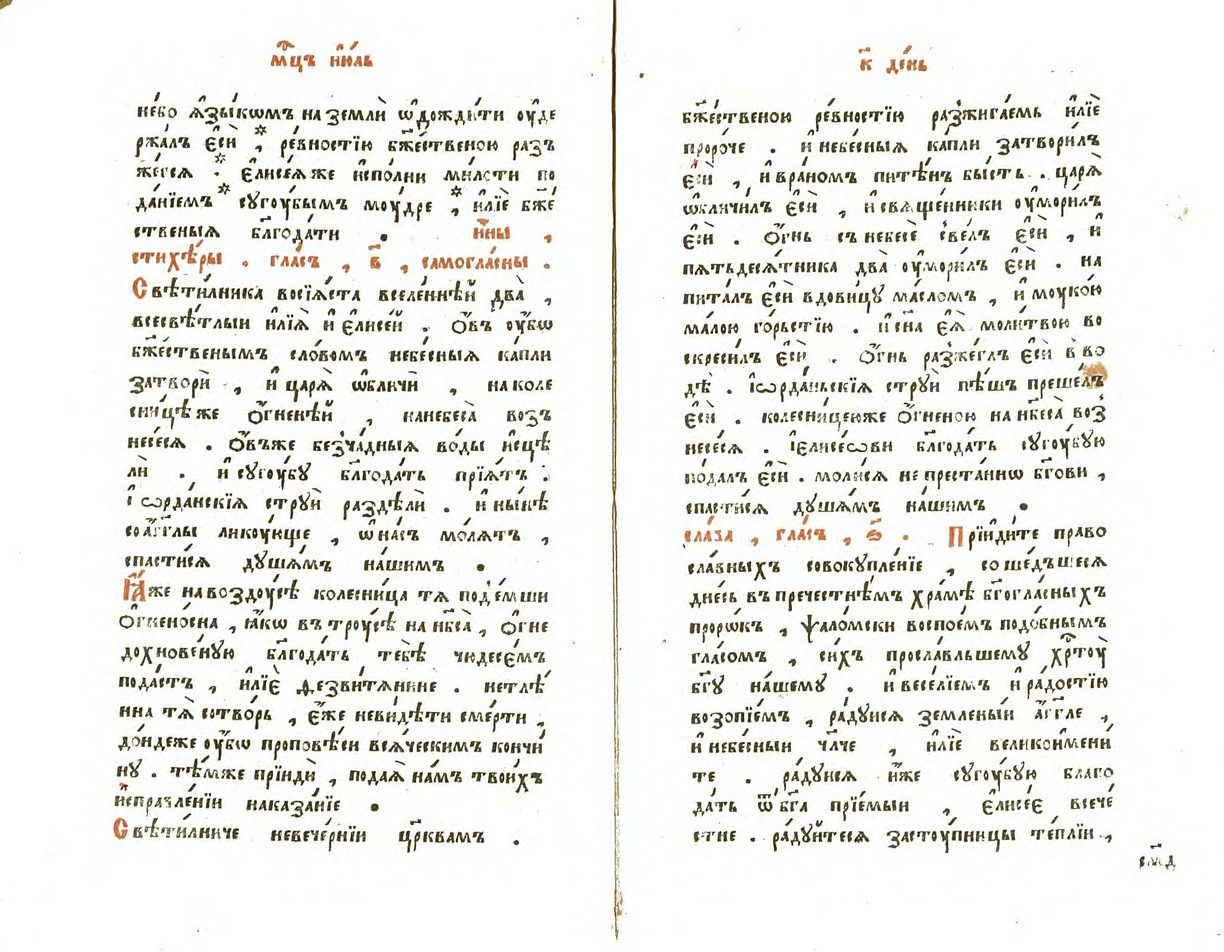 мц҃ъ ию́ль
не́бо ѧ҆зы́кѡмъ на землѝ ѡ҆дожди́ти ᲂу҆де
ржа́лъ є҆сѝ , ре́вностїю бж҃е́ственою разъ
же́гсѧ . є҆лисе́ѧ же и҆спо́лни ми́лости по
да́нїемъ сꙋгᲂу́бымъ мᲂу́дре , и҆лїѐ бж҃е
ственыѧ бл҃года́ти . и҆́ны ,
стихѣ́ры . гла́съ , в҃ , самогла́сны .
Свѣти́лника восїѧ́ста вселе́ннѣй два̀ ,
всесвѣ́тлыи и҆лїѧ̀ и҆ є҆лисе́й . Ѻ҆́въ ᲂу҆́бѡ
бж҃е́ственымъ сло́вомъ небе́сныѧ ка́пли
затворѝ , и҆ царѧ̀ ѡ҆бличѝ , на коле
сни́цѣ же ѻ҆́гненѣй , на небеса̀ возъ
несе́сѧ . Ѻ҆́въ же безча́дныѧ во́ды и҆сцѣ
лѝ . и҆ сꙋгᲂу́бꙋ бл҃года́ть прїѧ́тъ .
і҆ѡрда́нскїѧ стрꙋѝ раздѣлѝ . и҆ ны́нѣ
со а҆́гг҃лы ликᲂу́юще , ѡ҆ на́съ мо́лѧтъ ,
спасти́сѧ дꙋша́мъ на́шимъ .
Ꙗ҆́же на воздᲂу́сѣ колесни́ца тѧ̀ под̾е́мши
ѻ҆гненосна , ꙗ҆́кѡ въ трᲂу́сѣ на нб҃са̀ , ѻ҆гне
дохнове́нꙋю бл҃года́ть тебѣ̀ чюдесе́мъ
пода́стъ , и҆лїѐ ѳезвитѧ́нине . нетлѣ́
нна тѧ̀ сотво́рь , є҆́же не ви́дѣти сме́рти ,
до́ндеже ᲂу҆́бѡ проповѣ́си всѧ́ческимъ кончи́
нꙋ . тѣ́мже прїидѝ , пода́ѧ на́мъ твои́хъ
и҆справле́нїи наказа́нїе .
Свѣти́лниче невече́рнїи цр҃квамъ .
к҃ де́нь
бж҃е́ственою ре́вностїю разжига́емь и҆лїѐ
проро́че . и҆ небе́сныѧ ка́пли затвори́лъ
є҆сѝ , и҆ вра́номъ пите́нъ бы́сть . царѧ̀
ѡ҆бличи́лъ є҆сѝ , и҆ свѧще́нники ᲂу҆мори́лъ
є҆сѝ . Ѻ҆́гнь съ небесѐ све́лъ є҆сѝ , и҆
пѧтьдесѧ́тника два̀ ᲂу҆мори́лъ є҆сѝ . на
пита́лъ є҆сѝ вдови́цꙋ ма́сломъ , и҆ мᲂуко́ю
ма́лою го́рьстїю . и҆ сн҃а є҆ѧ̀ моли́твою во
скреси́лъ є҆сѝ . Ѻ҆́гнь разже́глъ є҆сѝ в во
дѣ̀ . і҆ѡрда́ньскїѧ стрꙋѝ пѣ́шъ преше́лъ
є҆сѝ . колесни́цею же ѻ҆́гненою на нб҃са̀ воз̾
несе́сѧ . і҆ є҆лисе́ѡви бл҃года́ть сꙋгᲂу́бꙋю
пода́лъ є҆сѝ . моли́сѧ непреста́ннѡ бг҃ови ,
спасти́сѧ дꙋша́мъ на́шимъ .
сла́ва , гла́съ , ѕ҃ . Прїиди́те право
сла́вныхъ совокꙋпле́нїе , соше́дъшесѧ
дне́сь въ пречестнѣ́мъ хра́мѣ бг҃огла́сныхъ
проро́къ , ѱало́мски воспое́мъ подо́бнымъ
гла́сомъ , си́хъ просла́вльшемꙋ хрⷭ҇тᲂу̀
бг҃ꙋ на́шемꙋ . и҆ весе́лїемъ и҆ ра́достїю
возопїе́мъ , ра́дꙋисѧ земле́ныи а҆́гг҃ле ,
и҆ небе́сныи чл҃че , и҆лїѐ великоимени́
те . ра́дꙋисѧ и҆́же сꙋгᲂу́бꙋю благо
да́ть ѿ бг҃а прїе́мыи , є҆лисе́е всече́
стне . ра́дꙋйтесѧ застᲂу́пницы те́плїи ,
смд